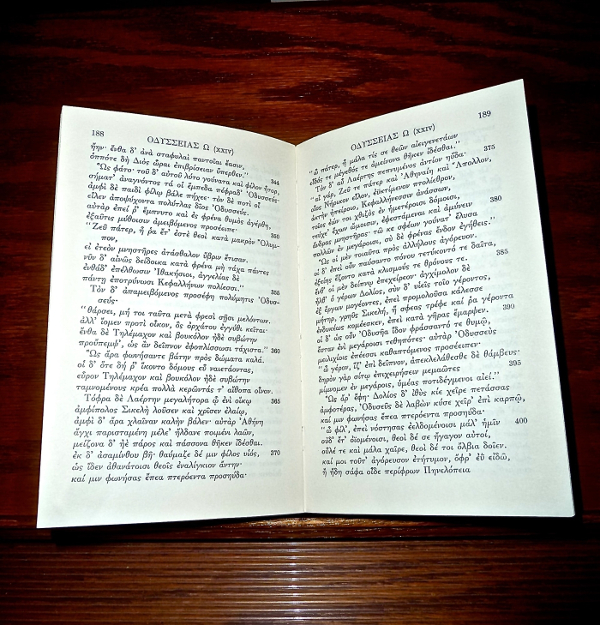 188 ΟΔΥΣΣΕΙΑΣ Ω (XXIV)
ἤην· ἔνθα δ' ἀνὰ σταφυλαὶ παντοῖαι ἔασιν,
ὁππότε δὴ Διὸς ὧραι ἐπιβρίσειαν ὕπερθεν." 344
Ὣς φάτο· τοῦ δ' αὐτοῦ λύτο γούνατα καὶ φίλον ἦτορ,
σήματ' ἀναγνόντος τά οἱ ἔμπεδα πέφραδ' Ὀδυσσεύς·
ἀμφὶ δὲ παιδὶ φίλῳ βάλε πήχεε· τὸν δὲ ποτὶ οἷ
εἷλεν ἀποψύχοντα πολύτλας δῖος Ὀδυσσεύς.
αὐτὰρ ἐπεί ῥ' ἔμπνυτο καὶ ἐς φρένα θυμὸς ἀγέρθη,
ἐξαῦτις μύθοισιν ἀμειβόμενος προσέειπε· 350
"Ζεῦ πάτερ, ἦ ῥα ἔτ' ἐστὲ θεοὶ κατὰ μακρὸν Ὄλυμ-
πον,
εἰ ἐτεὸν μνηστῆρες ἀτάσθαλον ὕβριν ἔτισαν.
νῦν δ' αἰνῶς δείδοικα κατὰ φρένα μὴ τάχα πάντες
ἐνθάδ' ἐπέλθωσιν Ἰθακήσιοι, ἀγγελίας δὲ
πάντῃ ἐποτρύνωσι Κεφαλλήνων πολίεσσι." 355
Τὸν δ' ἀπαμειβόμενος προσέφη πολύμητις Ὀδυσ-
σεύς·
"θάρσει, μή τοι ταῦτα μετὰ φρεσὶ σῇσι μελόντων.
ἀλλ' ἴομεν προτὶ οἶκον, ὃς ὀρχάτου ἐγγύθι κεῖται·
ἔνθα δὲ Τηλέμαχον καὶ βουκόλον ἠδὲ συβώτην
προὔπεμψ', ὡς ἂν δεῖπνον ἐφοπλίσσωσι τάχιστα." 360
Ὣς ἄρα φωνήσαντε βάτην πρὸς δώματα καλά.
οἱ δ' ὅτε δή ῥ' ἵκοντο δόμους εὖ ναιετάοντας,
εὗρον Τηλέμαχον καὶ βουκόλον ἠδὲ συβώτην
ταμνομένους κρέα πολλὰ κερῶντάς τ' αἴθοπα οἶνον.
Τόφρα δὲ Λαέρτην μεγαλήτορα ᾧ ἐνὶ οἴκῳ 365
ἀμφίπολος Σικελὴ λοῦσεν καὶ χρῖσεν ἐλαίῳ,
ἀμφὶ δ' ἄρα χλαῖναν καλὴν βάλεν· αὐτὰρ Ἀθήνη
ἄγχι παρισταμένη μέλε' ἤλδανε ποιμένι λαῶν,
μείζονα δ' ἠὲ πάρος καὶ πάσσονα θῆκεν ἰδέσθαι.
ἐκ δ' ἀσαμίνθου βῆ· θαύμαζε δέ μιν φίλος υἱός, 370
ὡς ἴδεν ἀθανάτοισι θεοῖς ἐναλίγκιον ἄντην·
καί μιν φωνήσας ἔπεα πτερόεντα προσηύδα·
ΟΔΥΣΣΕΙΑΣ Ω (XXIV) 189
"ὦ πάτερ, ἦ μάλα τίς σε θεῶν αἰειγενετάων
εἶδός τε μέγεθός τε ἀμείνονα θῆκεν ἰδέσθαι."
Τὸν δ' αὖ Λαέρτης πεπνυμένος ἀντίον ηὔδα· 375
"αἲ γάρ, Ζεῦ τε πάτερ καὶ Ἀθηναίη καὶ Ἄπολλον,
οἷος Νήρικον εἷλον, ἐϋκτίμενον πτολίεθρον,
ἀκτὴν ἠπείροιο, Κεφαλλήνεσσιν ἀνάσσων,
τοῖος ἐών τοι χθιζὸς ἐν ἡμετέροισι δόμοισι,
τεύχε' ἔχων ὤμοισιν, ἐφεστάμεναι καὶ ἀμύνειν 380
ἄνδρας μνηστῆρας· τῶ κε σφέων γούνατ' ἔλυσα
πολλῶν ἐν μεγάροισι, σὺ δὲ φρένας ἔνδον ἐγήθεις."
Ὣς οἱ μὲν τοιαῦτα πρὸς ἀλλήλους ἀγόρευον.
οἱ δ' ἐπεὶ οὖν παύσαντο πόνου τετύκοντό τε δαῖτα,
ἑξείης ἕζοντο κατὰ κλισμούς τε θρόνους τε. 385
ἔνθ' οἱ μὲν δείπνῳ ἐπεχείρεον· ἀγχίμολον δὲ
ἦλθ' ὁ γέρων Δολίος, σὺν δ' υἱεῖς τοῖο γέροντος,
ἐξ ἔργων μογέοντες, ἐπεὶ προμολοῦσα κάλεσσε
μήτηρ, γρηῢς Σικελή, ἥ σφεας τρέφε καί ῥα γέροντα
ἐνδυκέως κομέεσκεν, ἐπεὶ κατὰ γῆρας ἔμαρψεν. 390
οἱ δ' ὡς οὖν Ὀδυσῆα ἴδον φράσσαντό τε θυμῷ,
ἔσταν ἐνὶ μεγάροισι τεθηπότες· αὐτὰρ Ὀδυσσεὺς
μειλιχίοις ἐπέεσσι καθαπτόμενος προσέειπεν·
"ὦ γέρον, ἵζ' ἐπὶ δεῖπνον, ἀπεκλελάθεσθε δὲ θάμβευς·
δηρὸν γὰρ σίτῳ ἐπιχειρήσειν μεμαῶτες 395
μίμνομεν ἐν μεγάροις, ὑμέας ποτιδέγμενοι αἰεί."
Ὣς ἄρ' ἔφη· Δολίος δ' ἰθὺς κίε χεῖρε πετάσσας
ἀμφοτέρας, Ὀδυσεῦς δὲ λαβὼν κύσε χεῖρ' ἐπὶ καρπῷ,
καί μιν φωνήσας ἔπεα πτερόεντα προσηύδα·
"ὦ φίλ', ἐπεὶ νόστησας ἐελδομένοισι μάλ' ἡμῖν 400
οὐδ' ἔτ' ὀϊομένοισι, θεοὶ δέ σε ἤγαγον αὐτοί,
οὖλέ τε καὶ μάλα χαῖρε, θεοὶ δέ τοι ὄλβια δοῖεν.
καί μοι τοῦτ' ἀγόρευσον ἐτήτυμον, ὄφρ' ἐῢ εἰδῶ,
ἢ ἤδη σάφα οἶδε περίφρων Πηνελόπεια